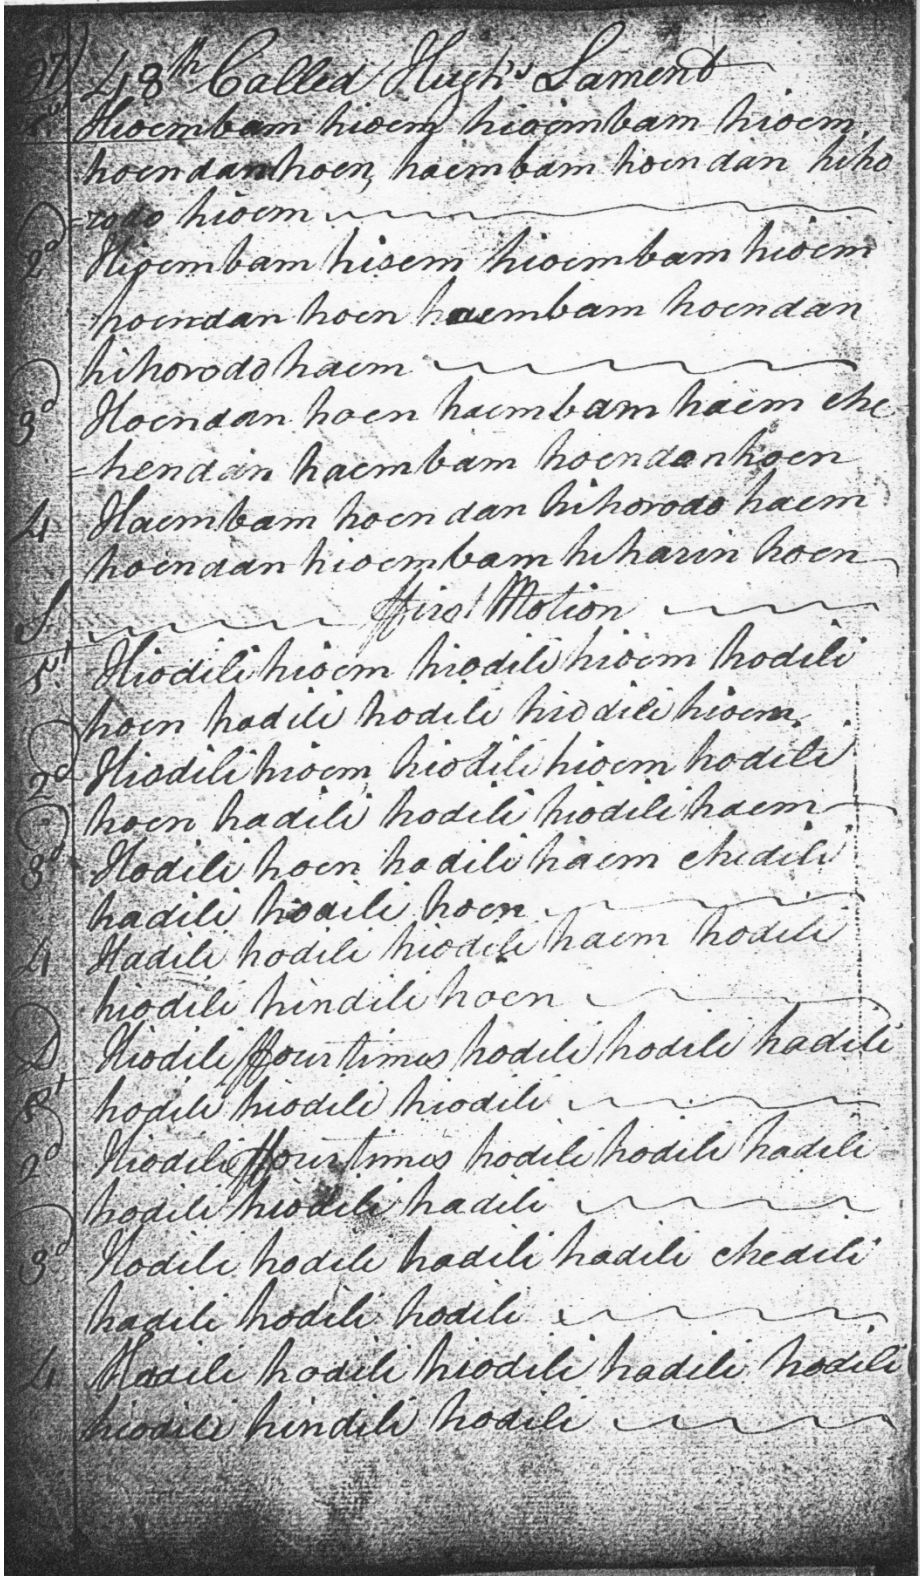 97 48th Called Hugh's Lament
1st Hioembam hioem hioembam hioem,
hoendanhoen, haembam hoendan hiho
=rodo hioem
2d Hioembam hioem hioembam hioem
hoendan hoen haembam hoendan
hihorodo haem
3d Hoendan hoen haembam haem che
=hendan haembam hoendanhoen
4 Haembam hoendan hihorodo haem
hoendan hioembam hiharin hoen
S First Motion
1st Hiodili hioem hiodili hioem hodili
hoen hadili hodili hiodili hioem,
2d Hiodili hioem hiodili hioem hodili
hoen hadili hodili hiodili haem
3d Hodili hoen hadili haem chedili
hadili hodili hoen
4 Hadili hodili hiodili haem hodili
hiodili hindili hoen
D Hiodili ffour times hodili hodili hadili
1st hodili hiodili hiodili
2d Hiodili ffour times hodili hodili hadili
hodili hiodili hadili
3d Hodili hodili hadili hadili chedili
hadili hodili hodili
4 Hadili hodili hiodili hadili hodili
hiodili hindili hodili